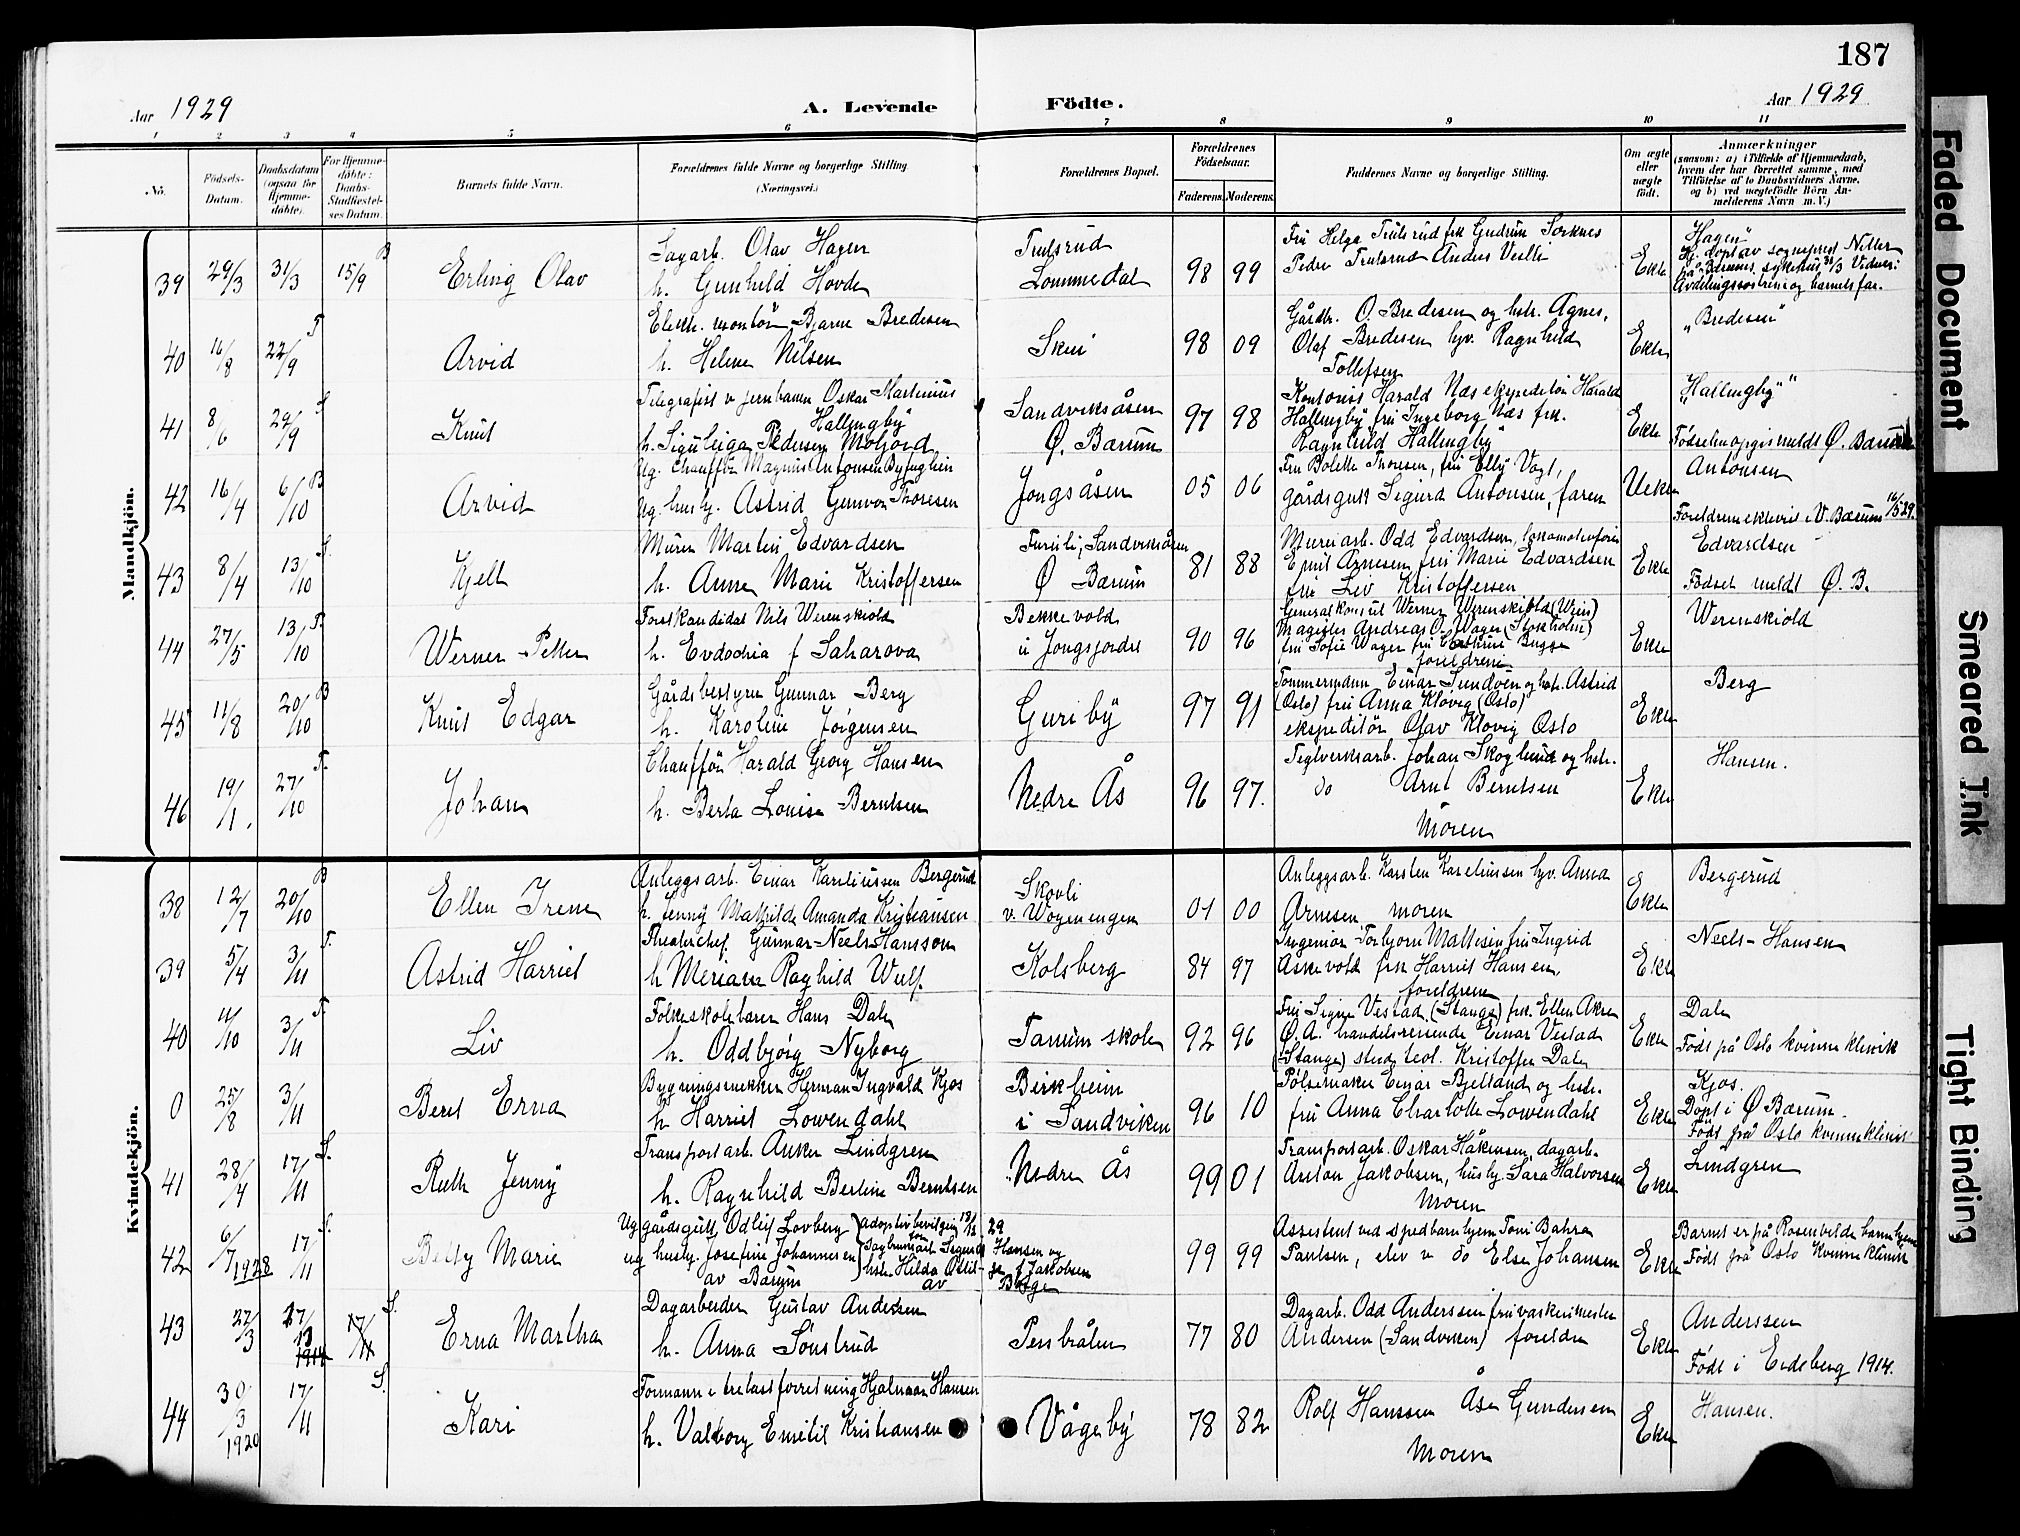 187
Aar 1929
A. Levende Födte.
Aar 1929
1 2 3 4 5 6 7 8 9 10 11
No.
Födsels-Datum.
Daabsdatum (ogsaa for Hjemme-döbte).
For Hjemme-döbte: Daabs-Stadfæstel-ses Datum.
Barnets fulde Navn.
Forældrenes fulde Navne og borgerlige Stilling. (Næringsvei.)
Forældrenes Bopæl.
Forældrenes Födselsaar.
Faderens. Moderens.
Faddernes Navne og borgerlige Stilling.
Om ægte eller uægte födt.
Anmærkninger (saasom: a) i Tilfælde af Hjemmedaab, hvem der har forrettet samme, med Tilföielse af to Daabsvidners Navne, og b) ved uægtefödte Börn An-melderens Navn m. V.)
Mandkjön.
39 29/3 31/3 15/9 B Erling Olav
Sagarb. Olav Hagen
h. Gunhild Hovde
Trulsrud
Lommedal
98 99
Fru Helga Trulsrud frk Gudrun Sorknes
Pedro Trulsrud Anders Veslli
Ekte
Hagen"
Hj. döpt av sogneprest
40 16/8 22/9 T Arvid
Elektr. montör Bjarne Bredesen
h. Helene Nilsen
Skui
98 09
Gårdbr. O. Bredesen og hstr. Agnes,
Olaf Bredesen hjv. Ragnhild
Tollefsen
Ekte
„Bredesen"
41 8/6 29/9 S Knut
Telegrafist v jernbanen Oskar Martinius
Hallingby
Pedersen Moljord
Sandviksåsen
Ø. Bærum
97 98
Kontorist Harald Næs ekspeditör Harald
Hallingby fru Ingeborg Næs frk.
Ragnhild Hallingby
Ekte
„Hallingby"
Födselen opgis meldt Ø. Bærum
42 16/4 6/10 B Arvid
Ug. chaufför Magnus Antonsen Byfuglein
Ug. husby. Astrid Gunvor Thoresen
Jongsåsen
05 06
Fru Bolette Thoresen, fru Elly Vogt,
gårdsgutt Sigurd Antonsen, faren
Uekte
Antonsen
Foreldrene ekteviet i V. Bærum 16/5 29.
43 8/4 13/10 S. Kjell
Murer Martin Edvardsen
h. Anne Marie Kristoffersen
Furuli, Sandviksåsen
Ø Bærum
81 88
Murerarb. Odd Edvardsen, lokomotivförer
Emil Arnesen fru Marie Edvardsen
fru Liv Kristoffersen
Ekte
Edvardsen
Födsel meldt Ø. B.
44 27/5 13/10 T. Werner Petter
Forstkandidat Nils Werenskiold
h. Evdochia f Saharova
Bekkevold
i Jongsjordet
90 96
Generalkonsul Werner Werenskiold (Wien)
Magister Andreas O. Wager (Stokholm)
fru Sofie Wager fru Cathrine Bugge
foreldrene
Ekte
Werenskiold
45 11/8 20/10 B Knut Edgar
Gårdsbestyrer Gunnar Berg
h. Karoline Jörgensen
Guriby
97 91
Tömmermann Einar Sundöen og hstr. Astrid
(Oslo) fru Anna Klövig (Oslo)
ekspeditör Olav Klövig Oslo
Ekte
Berg
46 19/1. 27/10 T. Johan
Chaufför Harald Georg Hansen
h. Berta Louise Berntsen
Nedre Ås
96 97.
Teglverksarb. Johan Skoglund og hstr.
do Arnt Berntsen
Moren
Ekte
Hansen.
Kvindekjön.
38 12/7 20/10 B Ellen Irene
Anleggsarb. Einar Kareliussen Bergerud
h. Jenny Mathilde Amanda Kristiansen
Skovli
v. Wøyenengen
01 00
Anleggsarb. Karsten Kareliussen hjv. Anna
Arnesen moren
Ekte
Bergerud
39 5/4 3/11 T. Astrid Harriet
Theaterchef Gunnar Neels-Hansson
h Meriam Raghild Wulf.
Kolsberg
84 97
Ingeniör Torbjörn Mattesen fru Ingrid
Askevold frk Harriet Hansen,
foreldrene
Ekte
Neels-Hansen
40 11/10 3/11 T. Liv
Folkeskolelærer Hans Dale
h. Oddbjörg Nyborg
Tanum skole
92 96
Fru Signe Vestad (Stange) frk. Ellen Aksen
Ø. A. handelsreisende Einar Vestad
(Stange) stud. teol. Kristoffer Dale
Ekte
Dale
Födt på Oslo kvinneklinik
0 25/8 3/11 Beret Erna
Bygningssnekker Herman Ingvald Kjos
h Harriet Lowendahl
Birkheim
i Sandviken
96 10
Pölsemaker Einar Bjelland og hstr.
fru Anna Charlotte Lowendahl
Ekte
Kjos.
Döpt i Ø Bærum.
Födt på Oslo kvinneklinik
41 28/4 17/11 S. Ruth Jenny
Transportarb. Anker Lindgren
h. Ragnhild Berline Berntsen
Nedre Ås
99 01
Transportarb. Oskar Håkensen, dagarb.
Anton Jakobsen, husby. Sara Halvorsen
Moren
Ekte
Lindgren
42 6/7 1928 17/11 S. Betty Marie
Ug gårdsgutt Odleif Lovberg
ug husby. Josefine Johannesen
av Bærum
adoptivbevilgning 18/12 29
for Sagbruksarb. Sigurd Hansen og
hstr. Hilda f Jakobsen
av
99 99
Assistent ved spedbarnhjem Toni Bahra
Paulsen, elev v do Else Johansen
Ekte
Barnet er på Rosenvilde barnehjem
Födt på Oslo Kvinneklinik
43 27/3 17/11 S. Erna Martha
Dagarbeider Gustav Andersen
h. Anna Sönstrud
Persbråten
77 80
Dagarb. Odd Anderssen fru vaskerimester
Andersen (Sandviken) foreldre
Ekte
Anderssen
Födt i Eidsberg 1914.
44 30/3 1920 17/11 S. Kari
Formann i trelastforretning Hjalmar Hansen
h. Valborg Emelie Kristiansen
Vågeby
78 82
Rolf Hanssen Åse Gundersen
Moren
Ekte
Hansen.
Faded Document
Smeared Ink
Tight Binding